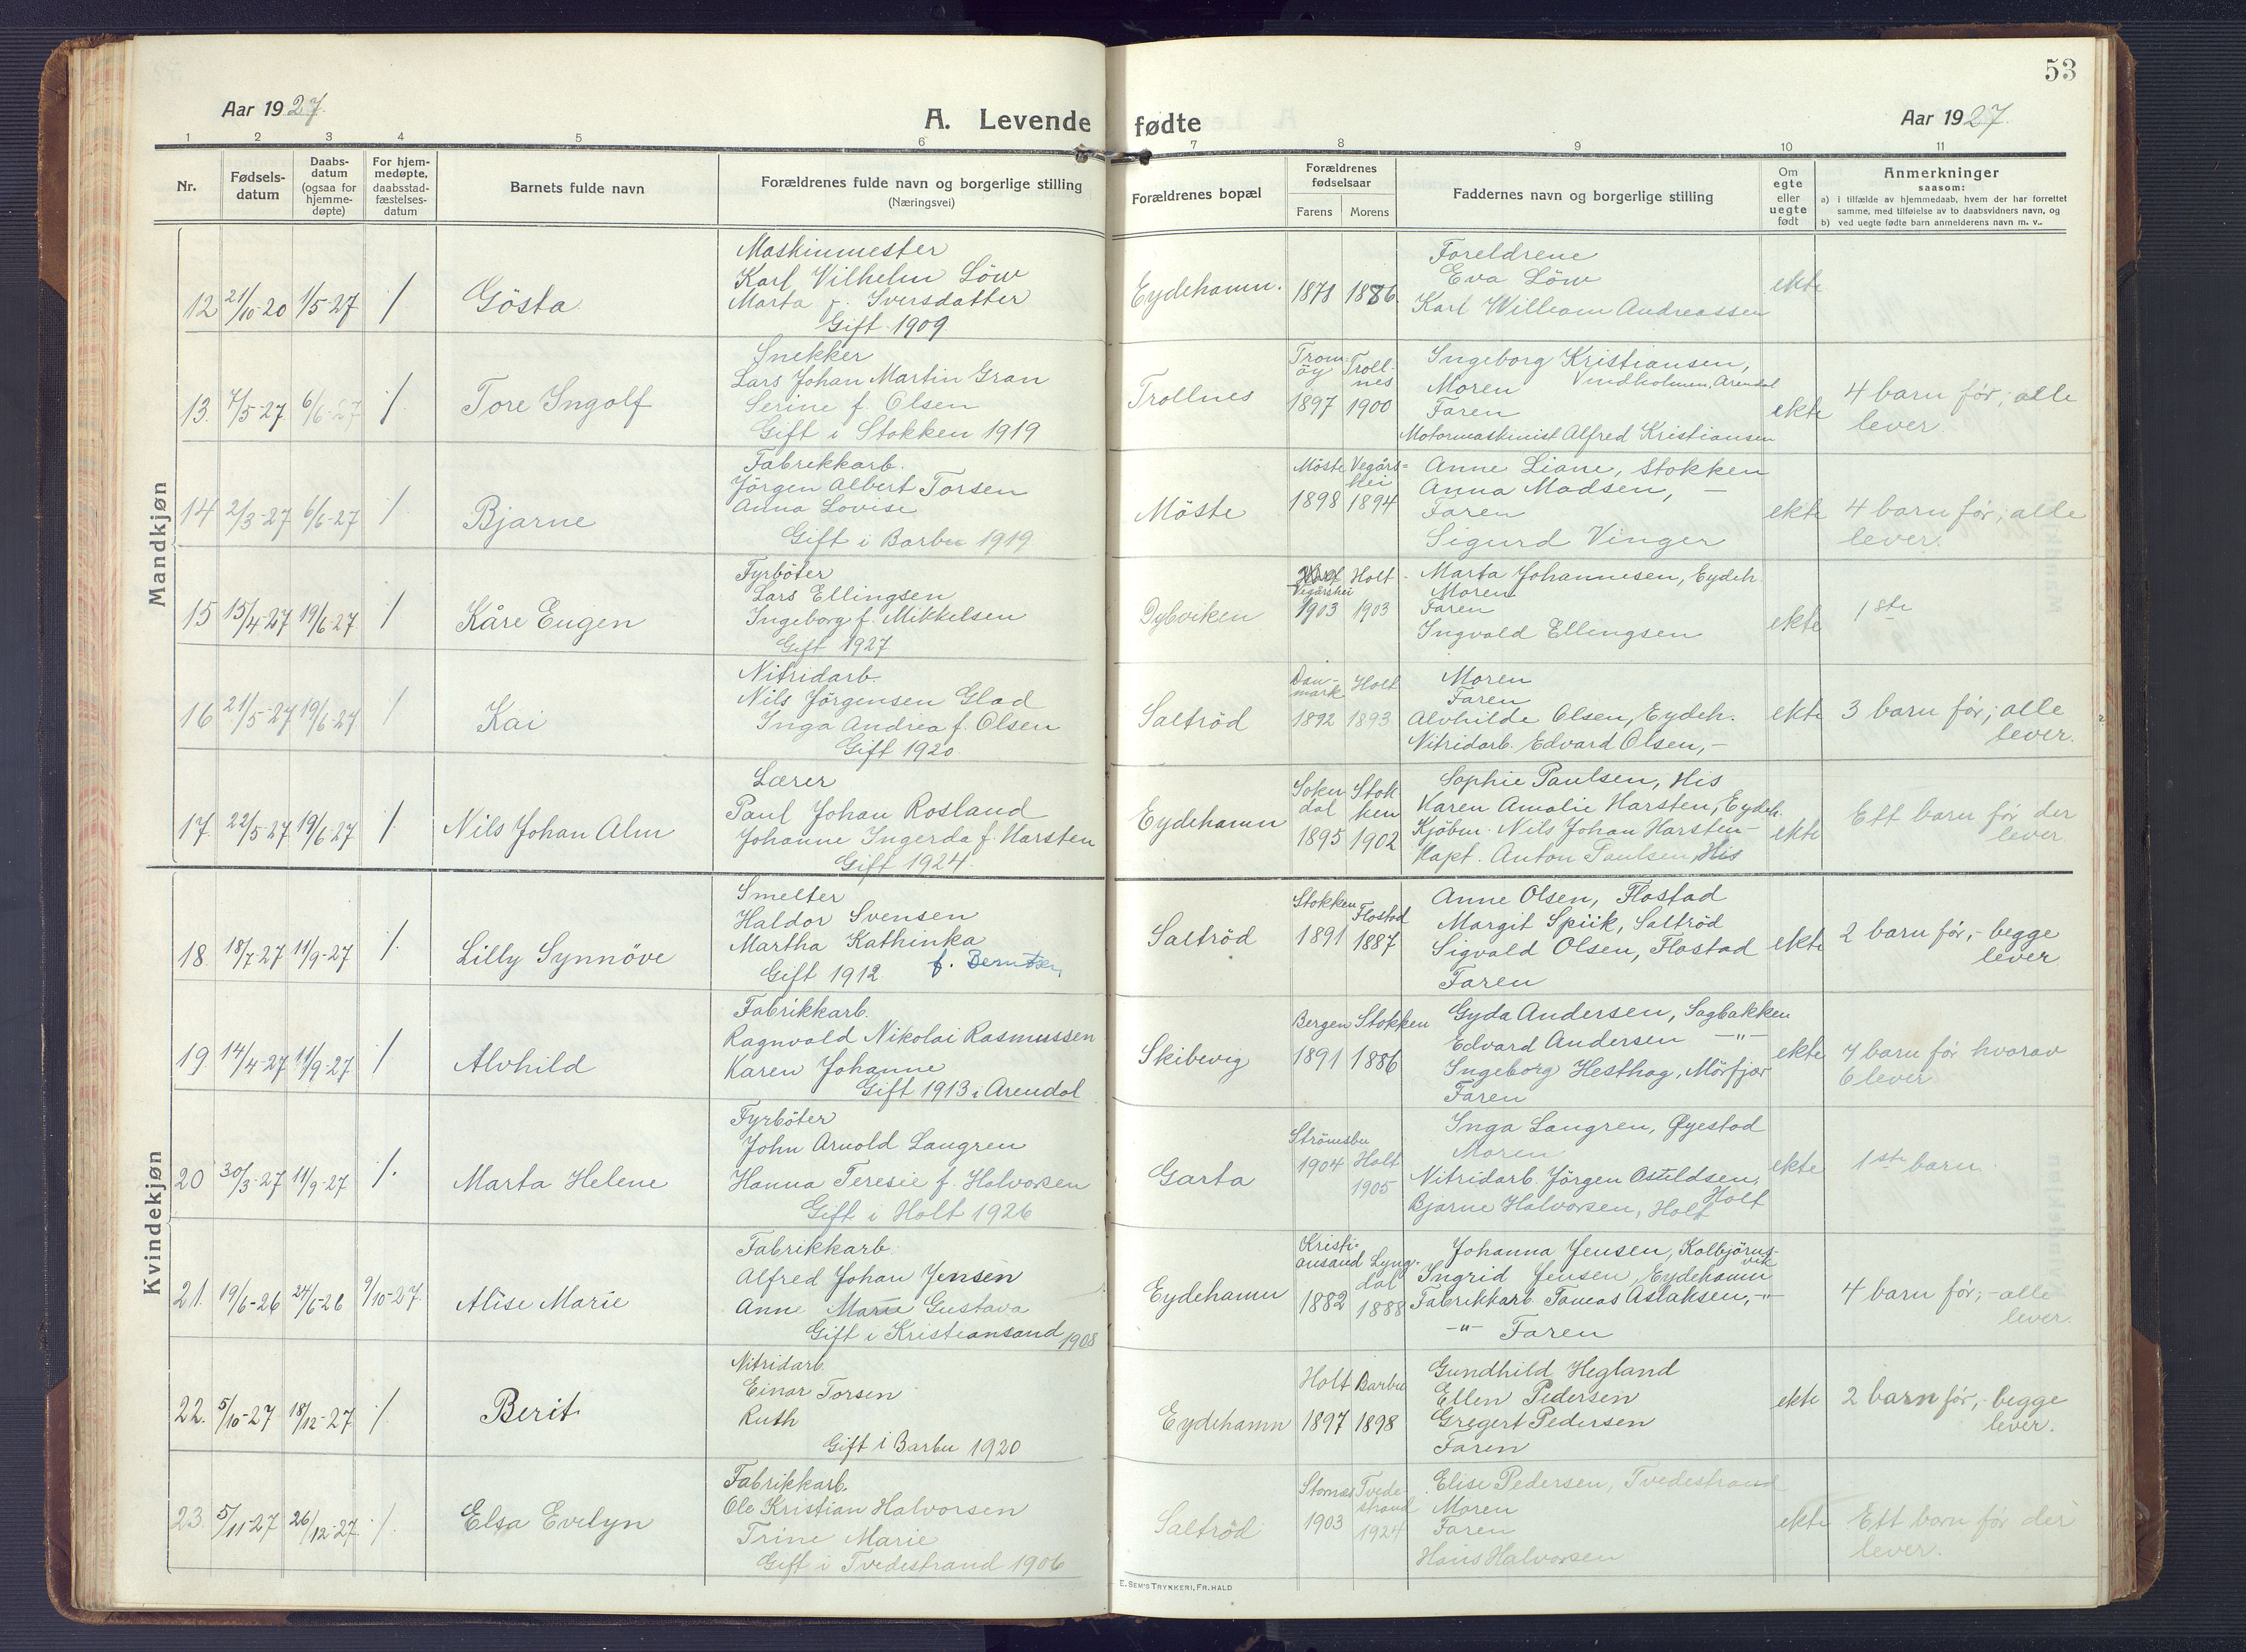 53
Aar 1927.
A. Levende fødte
Aar 1927.
1 2 3 4 5 6 7 8 9 10 11
Nr.
Fødsels-
datum
Daabs-
datum
(ogsaa for
hjemme-
døpte)
For hjem-
medøpte,
daabsstad-
fæstelses-
datum
Barnets fulde navn
Forældrenes fulde navn og borgerlige stilling
(Næringsvei)
Forældrenes bopæl
Forældrenes
fødselsaar
Farens Morens
Faddernes navn og borgerlige stilling
Om
egte
eller
uegte
født
Anmerkninger
saasom:
a) i tilfælde av hjemmedaab, hvem der har forrettet
samme, med tilføielse av to daabsvidners navn, og
b) ved uegte fødte barn anmelderens navn m. v..
Mandkjøn
12 21/10-20 1/5-27 / Gösta
Maskinmester
Karl Vilhelm Löw
Marta f. Iversdatter
Gift 1909
Eydehamn. 1878 1886
Foreldrene
Eva Löw
Karl William Andreassen
ekte
13. 7/5-27 6/6-27 / Tore Ingolf
Snekker
Lars Johan Martin Gran
Serine f. Olsen
Gift i Stokken 1919
Trollnes
Trom-
öy
1897
Troll-
nes
1900
Ingeborg Kristiansen,
Moren Vindholmen, Arendal
Faren
Motormaskinist Alfred Kristiansen
ekte
4 barn før; alle
lever.
14 2/3-27 6/6-27 / Bjarne
Fabrikkarb.
Jörgen Albert Torsen
Anna Lovise
Gift i Barbu 1919
Möste
Möste
1898
Vegårs-
hei
1894
Anne Liane, Stokken
Anna Madsen, —
Faren
Sigurd Vinger
ekte
4 barn før; alle
lever.
15 15/4-27 19/6-27 / Kåre Eugen
Fyrböter
Lars Ellingsen
Ingeborg f. Mikkelsen
Gift 1927
Dybviken
Vegårshei
1903
Holt
1903
Marta Johannesen, Eydeh.
Moren
Faren
Ingvald Ellingsen
ekte
1ste
16 21/5-27 19/6-27 / Kai
Nitridarb.
Nils Jörgensen Glad
Inga Andrea f. Olsen
Gift 1920.
Saltröd
Dan-
mark
1892
Holt
1893
Moren
Faren
Alvhilde Olsen, Eydeh.
Nitridarb. Edvard Olsen, —
ekte
3 barn før; alle
lever.
17. 22/5-27 19/6-27 /. Nils Johan Alm
Lærer
Paul Johan Rosland
Johanne Ingerda f. Harsten
Gift 1924.
Eydehamn
Sokn
dal
1895
Stok
ken
1902
Sophie Paulsen, His
Karen Amalie Harsten, Eydeh.
Kjöbm. Nils Johan Harsten —
Kapt. Anton Paulsen, His
ekte
Ett barn før der
lever.
Kvindekjøn
18. 18/7-27 11/9-27 /. Lilly Synnöve
Smelter
Haldor Svensen
Martha Kathinka
f. Berntsen
Gift 1912.
Saltröd
Stokken
1891
Flostad
1887
Anne Olsen, Flostad
Margit Spiik, Saltröd
Sigvald Olsen, Flostad
Faren
ekte
2 barn før, - begge
lever
19 14/4-27 11/9-27 / Alvhild
Fabrikkarb.
Ragnvald Nikolai Rasmussen
Karen Johanne
Gift 1913 i Arendal
Skibevig
Bergen
1891
Stokken
1886
Gyda Andersen, Sagbakken
Edvard Andersen —"—
Ingeborg Hesthag, Mörfjær
Faren
ekte
7 barn før hvorav
6 lever
20 30/3-27 11/9-27 /. Marta Helene
Fyrböter
John Arnold Langren
Hanna Teresie f. Halvorsen
Gift i Holt 1926
Garta
Strömsbu
1904
Holt
1905
Inga Langren, Øyestad
Moren
Nitridarb. Jörgen Ostildsen,
Holt
Bjarne Halvorsen, Holt
ekte
1ste barn
21. 19/6-26 24/6-26 9/10-27. Alise Marie
Fabrikkarb.
Alfred Johan Jensen
Anne Maria Gustava
Gift i Kristiansand 1908
Eydehamn
Kristi-
ansand
1882
Lyng-
dal
1888
Johanna Jensen, Kolbjörns-
vik
Ingrid Jensen, Eydehamn
Fabrikkarb. Tomas Aslaksen, —"
—"— Faren
4 barn før; - alle
lever.
22. 5/10-27 18/12-27 / Berit
Nitridarb.
Einar Torsen
Ruth
Gift i Barbu 1920
Eydehamn
Holt
1897
Barbu
1898
Gundhild Hegland
Ellen Pedersen
Gregert Pedersen
Faren
ekte
2 barn før, - begge
lever.
23. 5/11-27 26/12-27 /. Elsa Evelyn
Fabrikkarb.
Ole Kristian Halvorsen
Trine Marie
Gift i Tvedestrand 1906
Saltröd
1903
Tvede-
strand
1924
Elise Pedersen, Tvedestrand
Moren
Faren
Hans Halvorsen
ekte
Ett barn før der
lever.
E. SEM'S TRYKKERI, FR.HALD